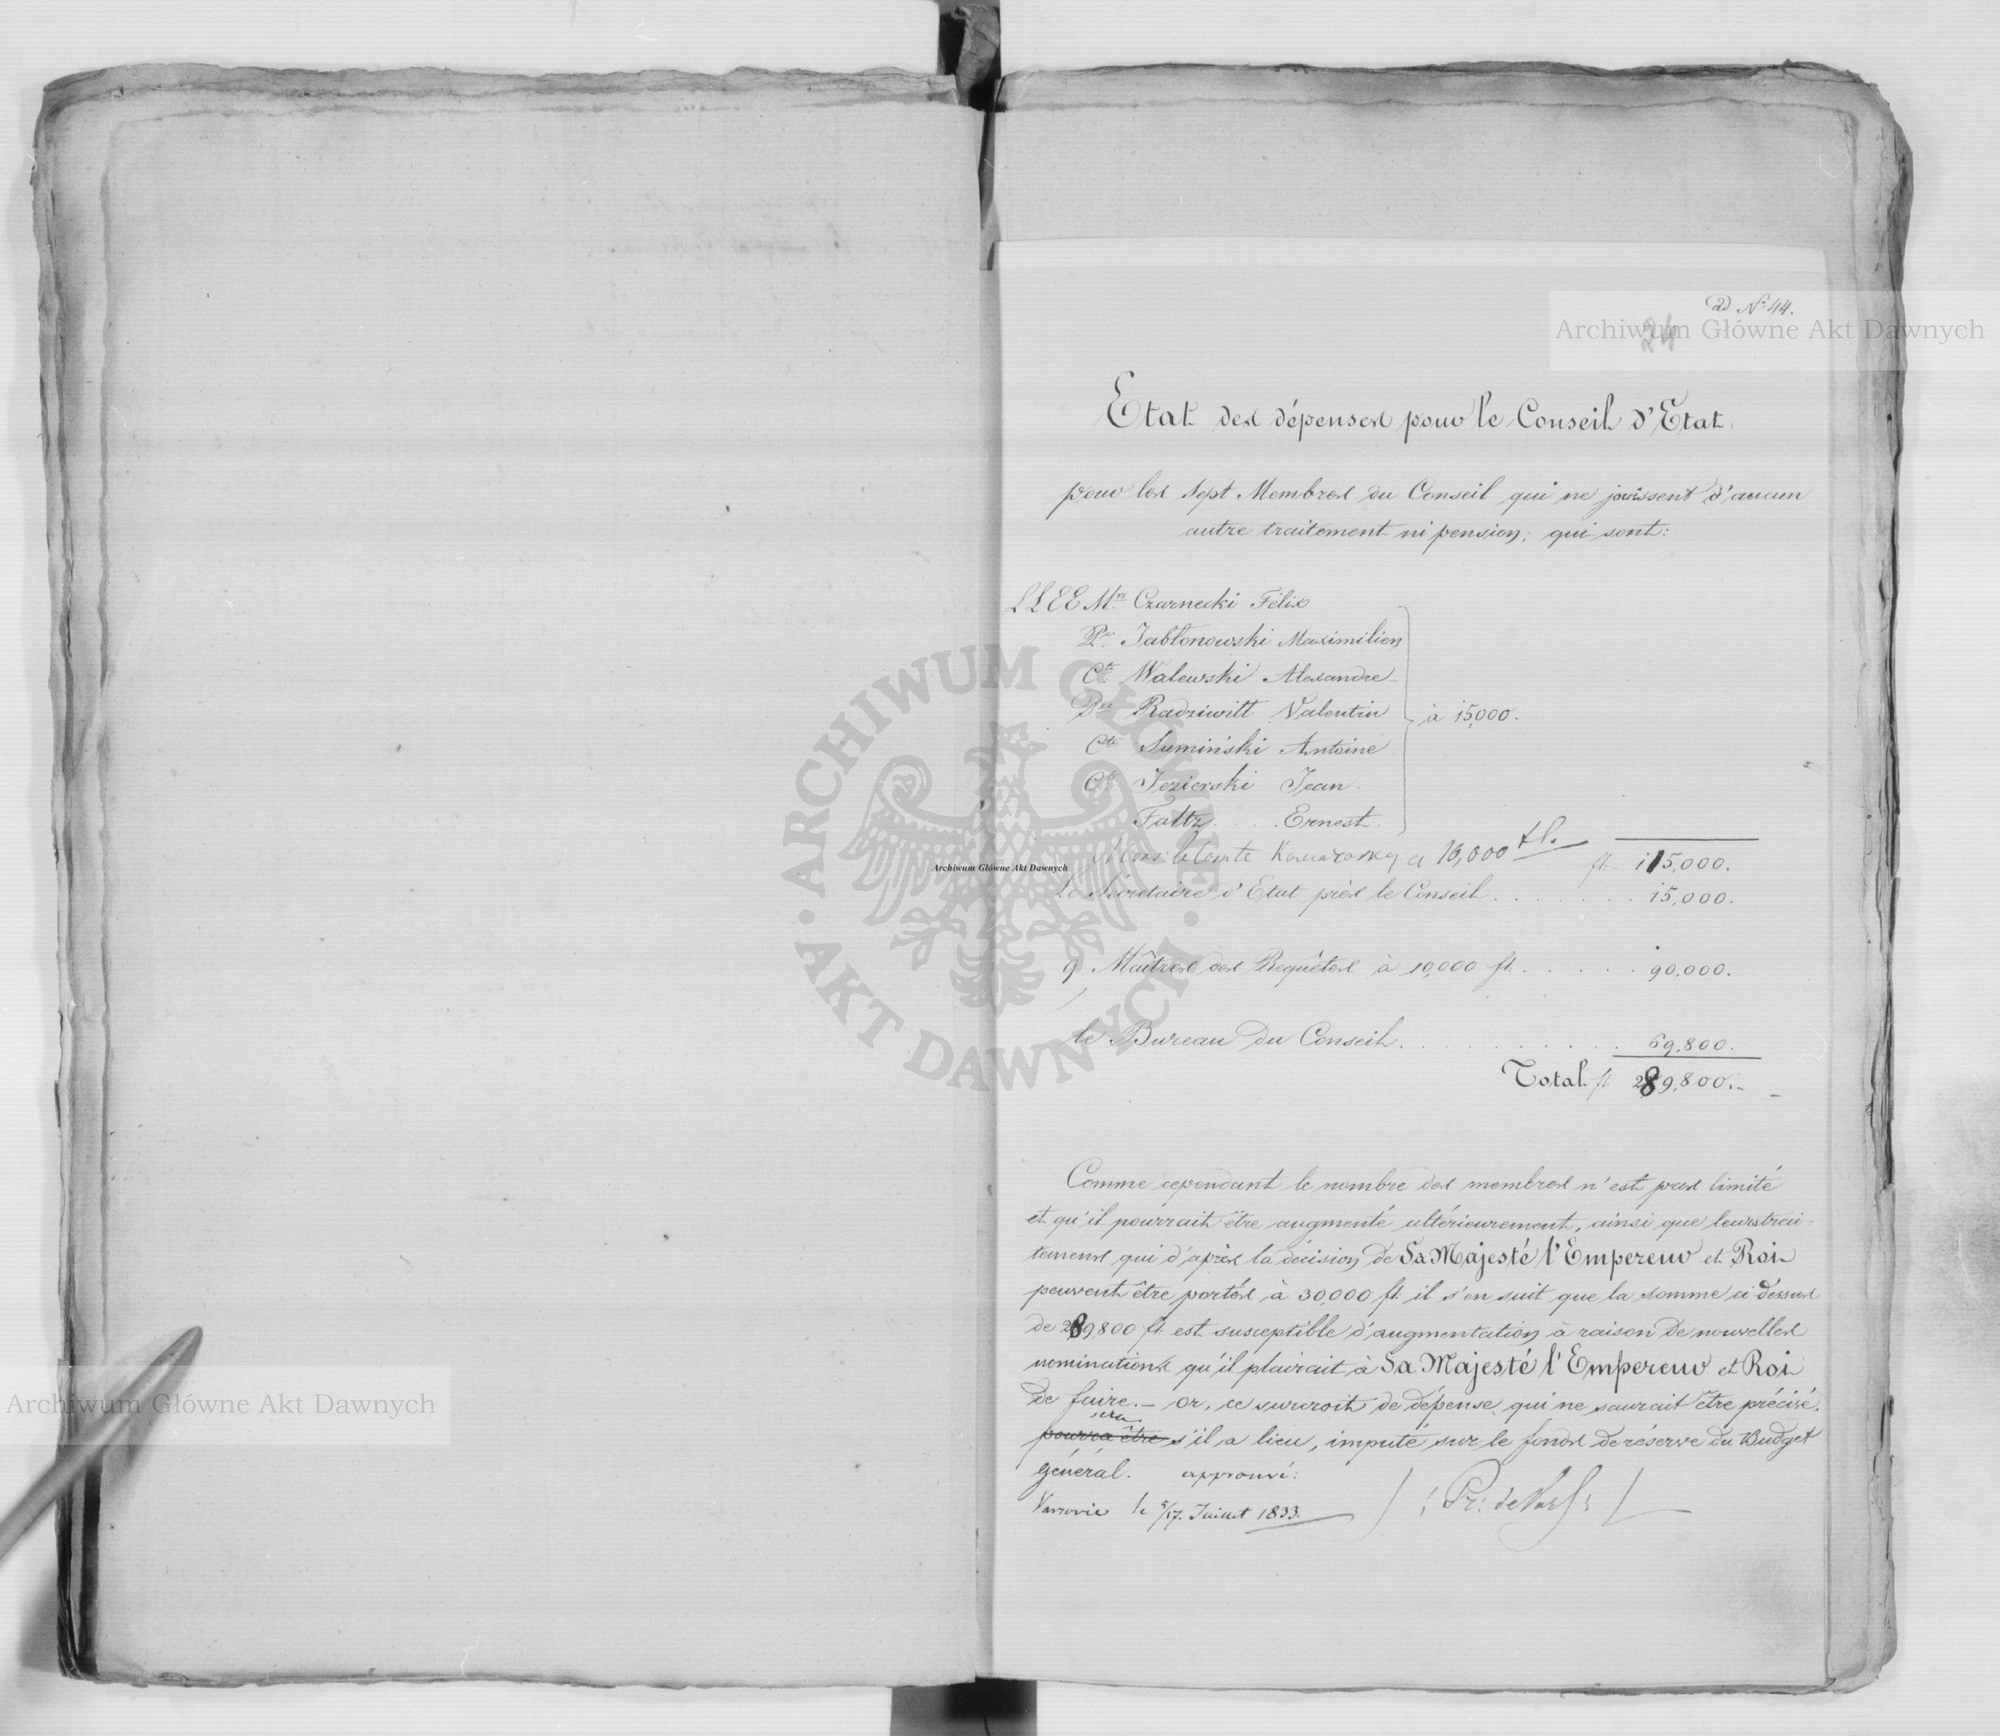 ad Nº 44.
24
Archiwum Główne Akt Dawnych
Etat des dépenses pour le Conseil d'Etat.
pour les sept Membres du Conseil qui ne jouissent d'aucun
autre traitement ni pension; qui sont:
LLEE Mrs Czarnecki Félix
Pce Jabłonowski Maximilien
Cte Walewski Alexandre
Pce Radziwiłł Valentin à 15,000.
Cte Sumiński Antoine
Cte Jezierski Jean.
Faltz Ernest.
Mons: le Comte à 10,000 fl. fl. 115,000.
Le Sécretaire d'Etat près le Conseil . . . . . . . 15,000.
9 Maîtres des Requêtes à 10,000 fl. . . . . . 90,000.
le Bureau du Conseil . . . . . . . . . . 69,800.
Total fl 289,800.-
Comme cependant le nombre des membres n'est pas limité
et qu'il pourrait être augmenté ultérieurement, ainsi que leurs trai-
temens qui d'après la décision de Sa Majesté l'Empereur et Roi
peuvent être portés à 30,000 fl. il s'en suit que la somme ci dessus
de 289,800 fl. est susceptible d'augmentation à raison de nouvelles
nominations qu'il plairait à Sa Majesté l'Empereur et Roi
de faire. – or, ce surcroit de dépense qui ne saurait être précisé,
sera
pourra être s'il a lieu, imputé sur le fonds de réserve du Budget
général. approuvé:
Varsovie le 5/17. Juillet 1833.
Archiwum Główne Akt Dawnych
ARCHIWUM GŁÓWNE
AKT DAWNYCH
Archiwum Główne Akt Dawnych